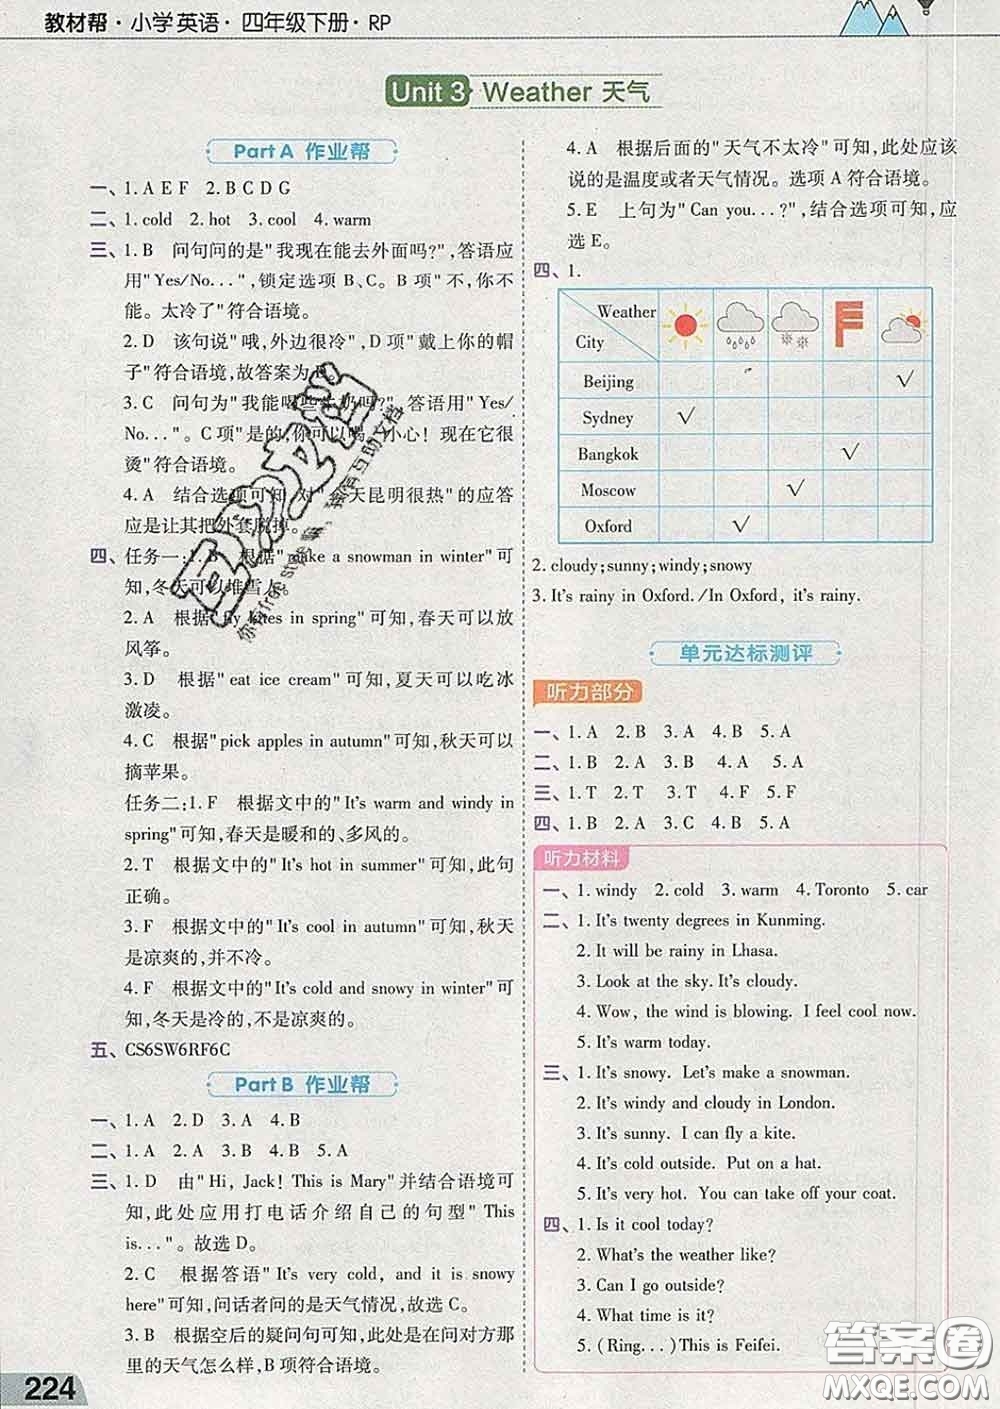 教材帮·小学英语·四年级下册·RP
Unit 3 Weather 天气
Part A 作业帮
一、1. A E F 2. B C D G
二、1. cold 2. hot 3. cool 4. warm
三、1. B 问句问的是"我现在能去外面吗?",答语应
用"Yes/No...",锁定选项 B、C。B 项"不,你不
能。太冷了"符合语境。
2. D 该句说"哦,外边很冷",D 项"戴上你的帽
子"符合语境,故答案为 D。
3. C 问句为"我能喝些牛奶吗?",答语用"Yes/
No..."。C 项"是的,你可以喝,小心!现在它很
烫"符合语境。
4. A 结合选项可知,对"今天昆明很热"的应答
应是让其把外套脱掉。
四、任务一:1. B 根据"make a snowman in winter"可
知,冬天可以堆雪人。
2. A 根据"fly kites in spring"可知,春天可以放
风筝。
3. D 根据"eat ice cream"可知,夏天可以吃冰
激凌。
4. C 根据"pick apples in autumn"可知,秋天可以
摘苹果。
任务二:1. F 根据文中的"It's warm and windy in
spring"可知,春天是暖和的、多风的。
2. T 根据文中的"It's hot in summer"可知,此句
正确。
3. F 根据文中的"It's cool in autumn"可知,秋天
是凉爽的,并不冷。
4. F 根据文中的"It's cold and snowy in winter"可
知,冬天是冷的,不是凉爽的。
五、CS6SW6RF6C
Part B 作业帮
一、1. A 2. D 3. A 4. B
二、1. A 2. A 3. B 4. B 5. A
三、1. D 由"Hi, Jack! This is Mary"并结合语境可
知,此处应用打电话介绍自己的句型"This
is..."。故选 D。
2. C 根据答语"It's very cold, and it is snowy
here"可知,问话者问的是天气情况,故选 C。
3. B 根据空后的疑问句可知,此处是在问对方那
里的天气怎么样,B 项符合语境。
224
4. A 根据后面的"天气不太冷"可知,此处应该
说的是温度或者天气情况。选项 A 符合语境。
5. E 上句为"Can you...?",结合选项可知,应
选 E。
四、1.
Weather
City
Beijing √
Sydney √
Bangkok √
Moscow √
Oxford √
2. cloudy;sunny;windy;snowy
3. It's rainy in Oxford. /In Oxford, it's rainy.
单元达标测评
听力部分
一、1. A 2. B 3. A 4. B 5. A
二、1. B 2. A 3. B 4. A 5. A
三、1. T 2. T 3. T 4. F 5. F
四、1. B 2. A 3. C 4. B 5. A
听力材料
一、1. windy 2. cold 3. warm 4. Toronto 5. car
二、1. It's twenty degrees in Kunming.
2. It will be rainy in Lhasa.
3. Look at the sky. It's cloudy.
4. Wow, the wind is blowing. I feel cool now.
5. It's warm today.
三、1. It's snowy. Let's make a snowman.
2. It's windy and cloudy in London.
3. It's sunny. I can fly a kite.
4. It's cold outside. Put on a hat.
5. It's very hot. You can take off your coat.
四、1. Is it cool today?
2. What's the weather like?
3. Can I go outside?
4. What time is it?
5. (Ring...) This is Feifei.
答案圈
MXQE.COM